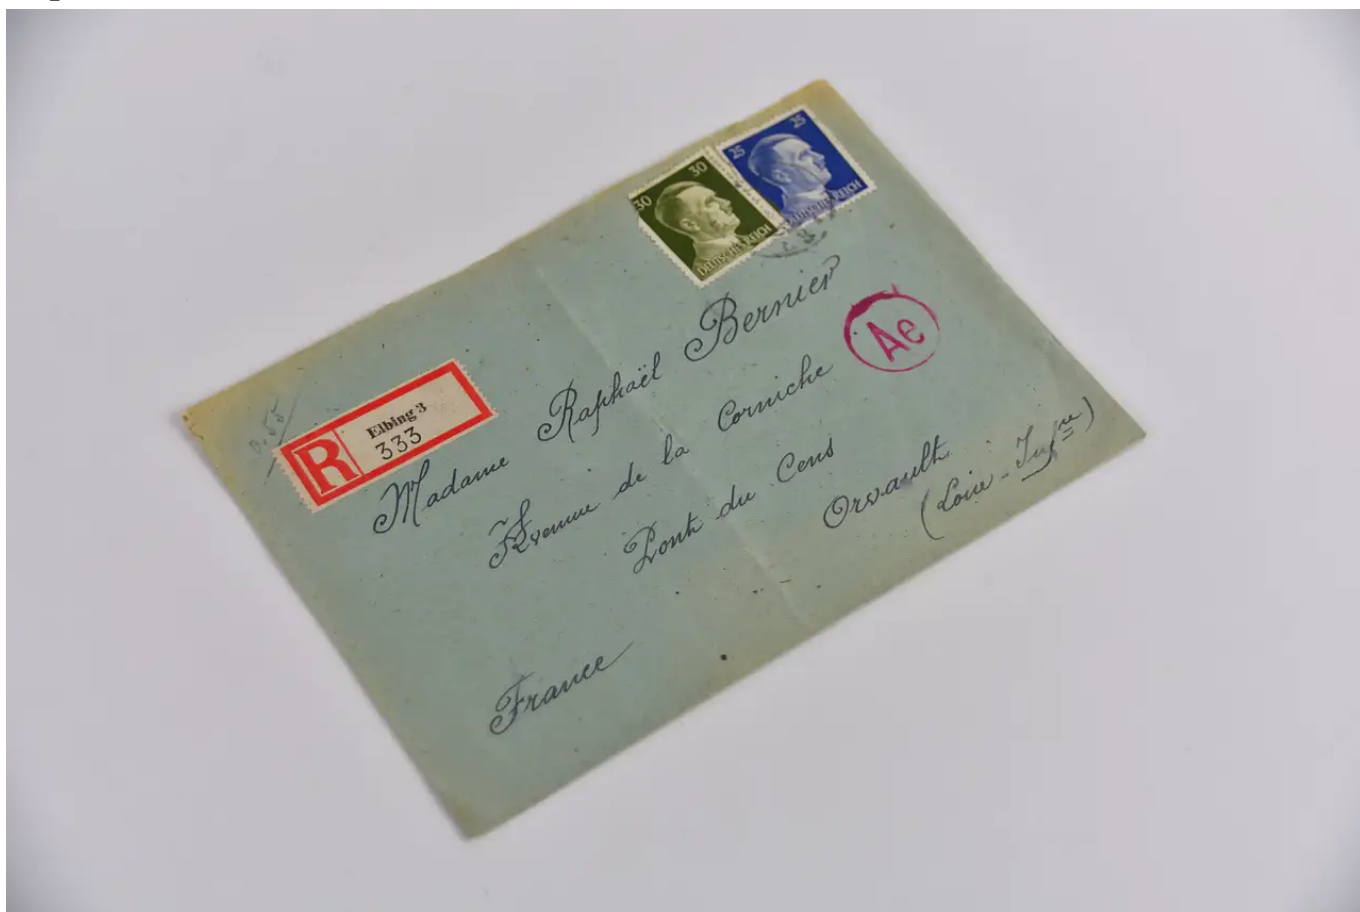 30 30
DEUTSCHES REICH
25 25
DEUTSCHES REICH
R
Elbing 3
333
Ae
Madame Raphaël Bernier
Avenue de la Corniche
Pont du Cens
Orvault
(Loire-Infre)
France